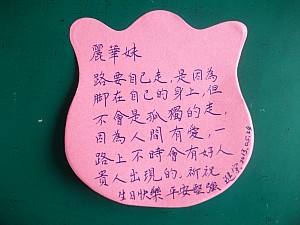 麗華妹
路要自己走,是因為
腳在自己的身上,但
不會是孤獨的走,
因為人間有愛,一
路上不時會有好人
貴人出現的,祈祝
生日快樂 平安堅強